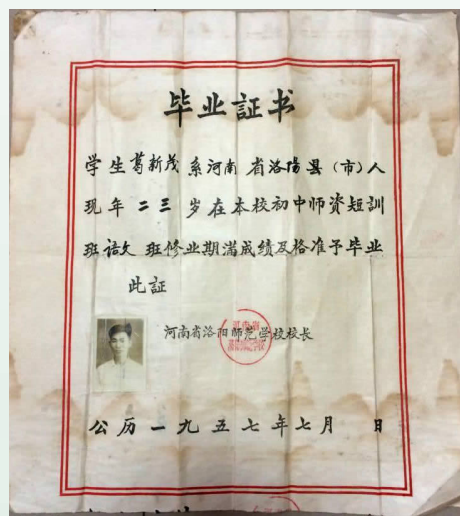 毕业証书
学生葛新茂系河南省洛陽县（市）人
现年二三岁在本校初中师资短訓
班語文班修业期滿成績及格准予毕业
此証
河南省洛阳师范学校校长
公历一九五七年七月 日